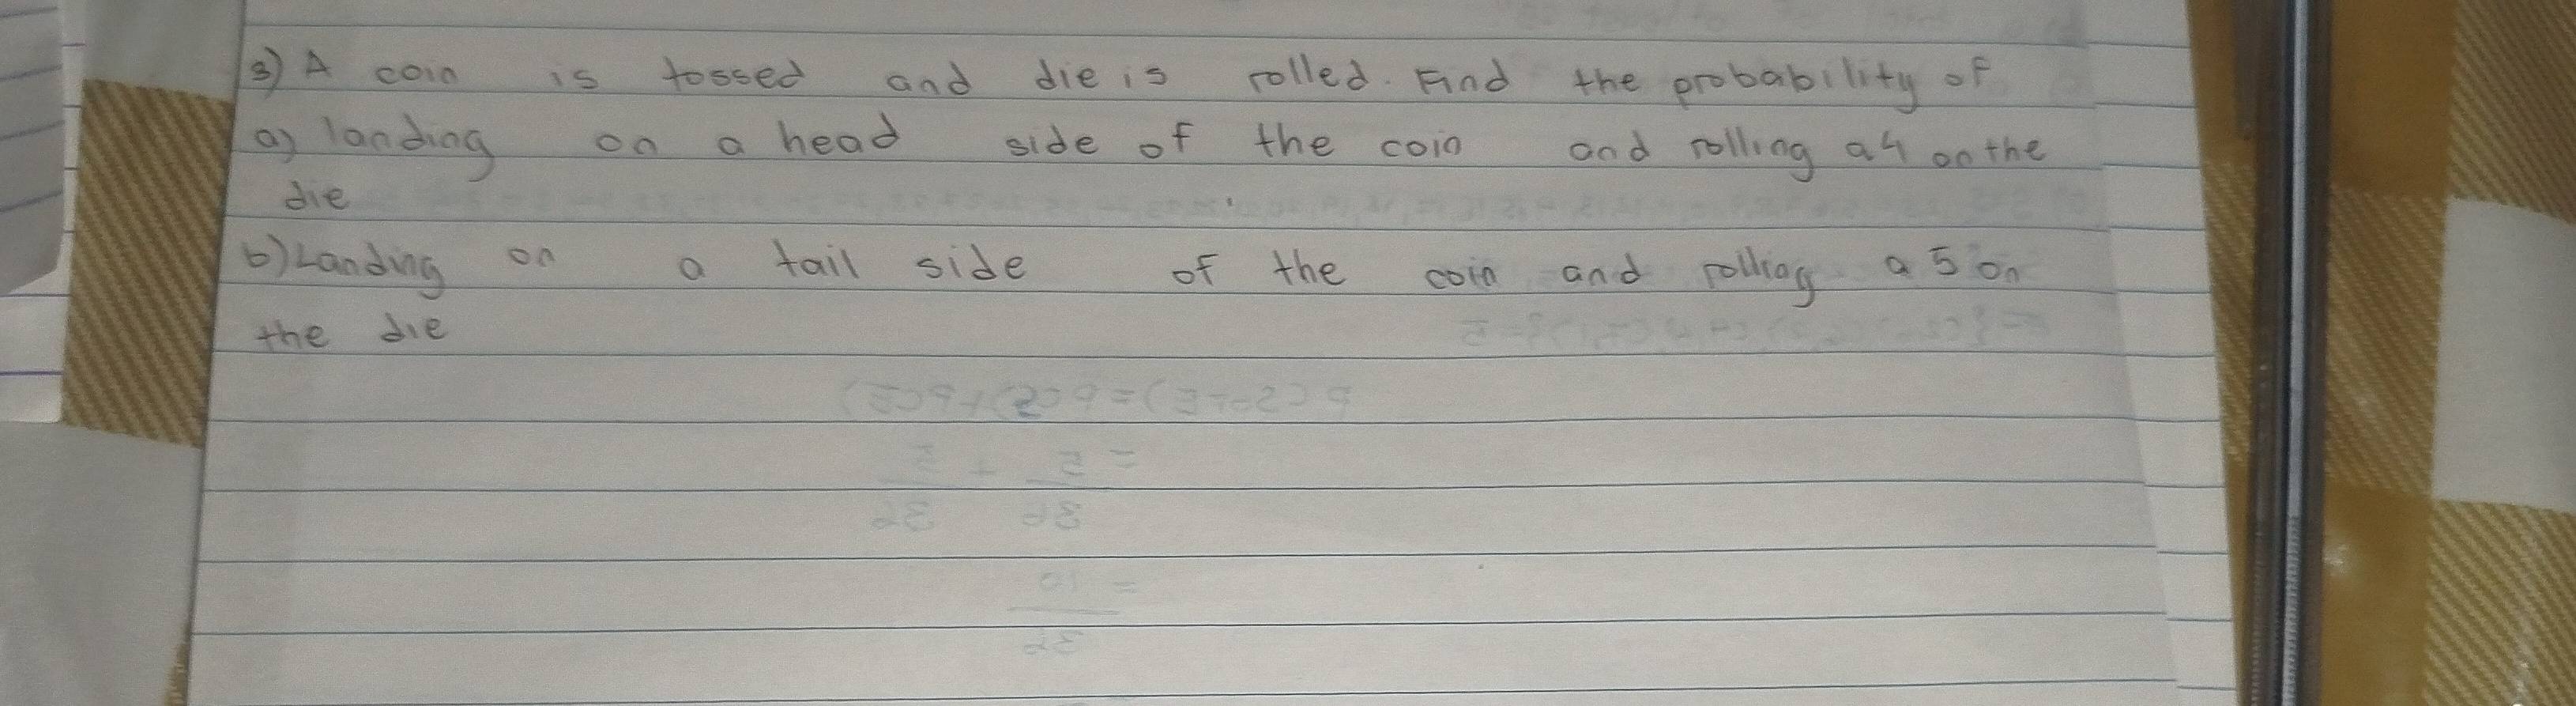 3) A coin is tossed and die is rolled. Find the probability of
a) landing on a head side of the coin and rolling a 4 on the
die
b) Landing on a tail side of the coin and rolling a 5 on
the die